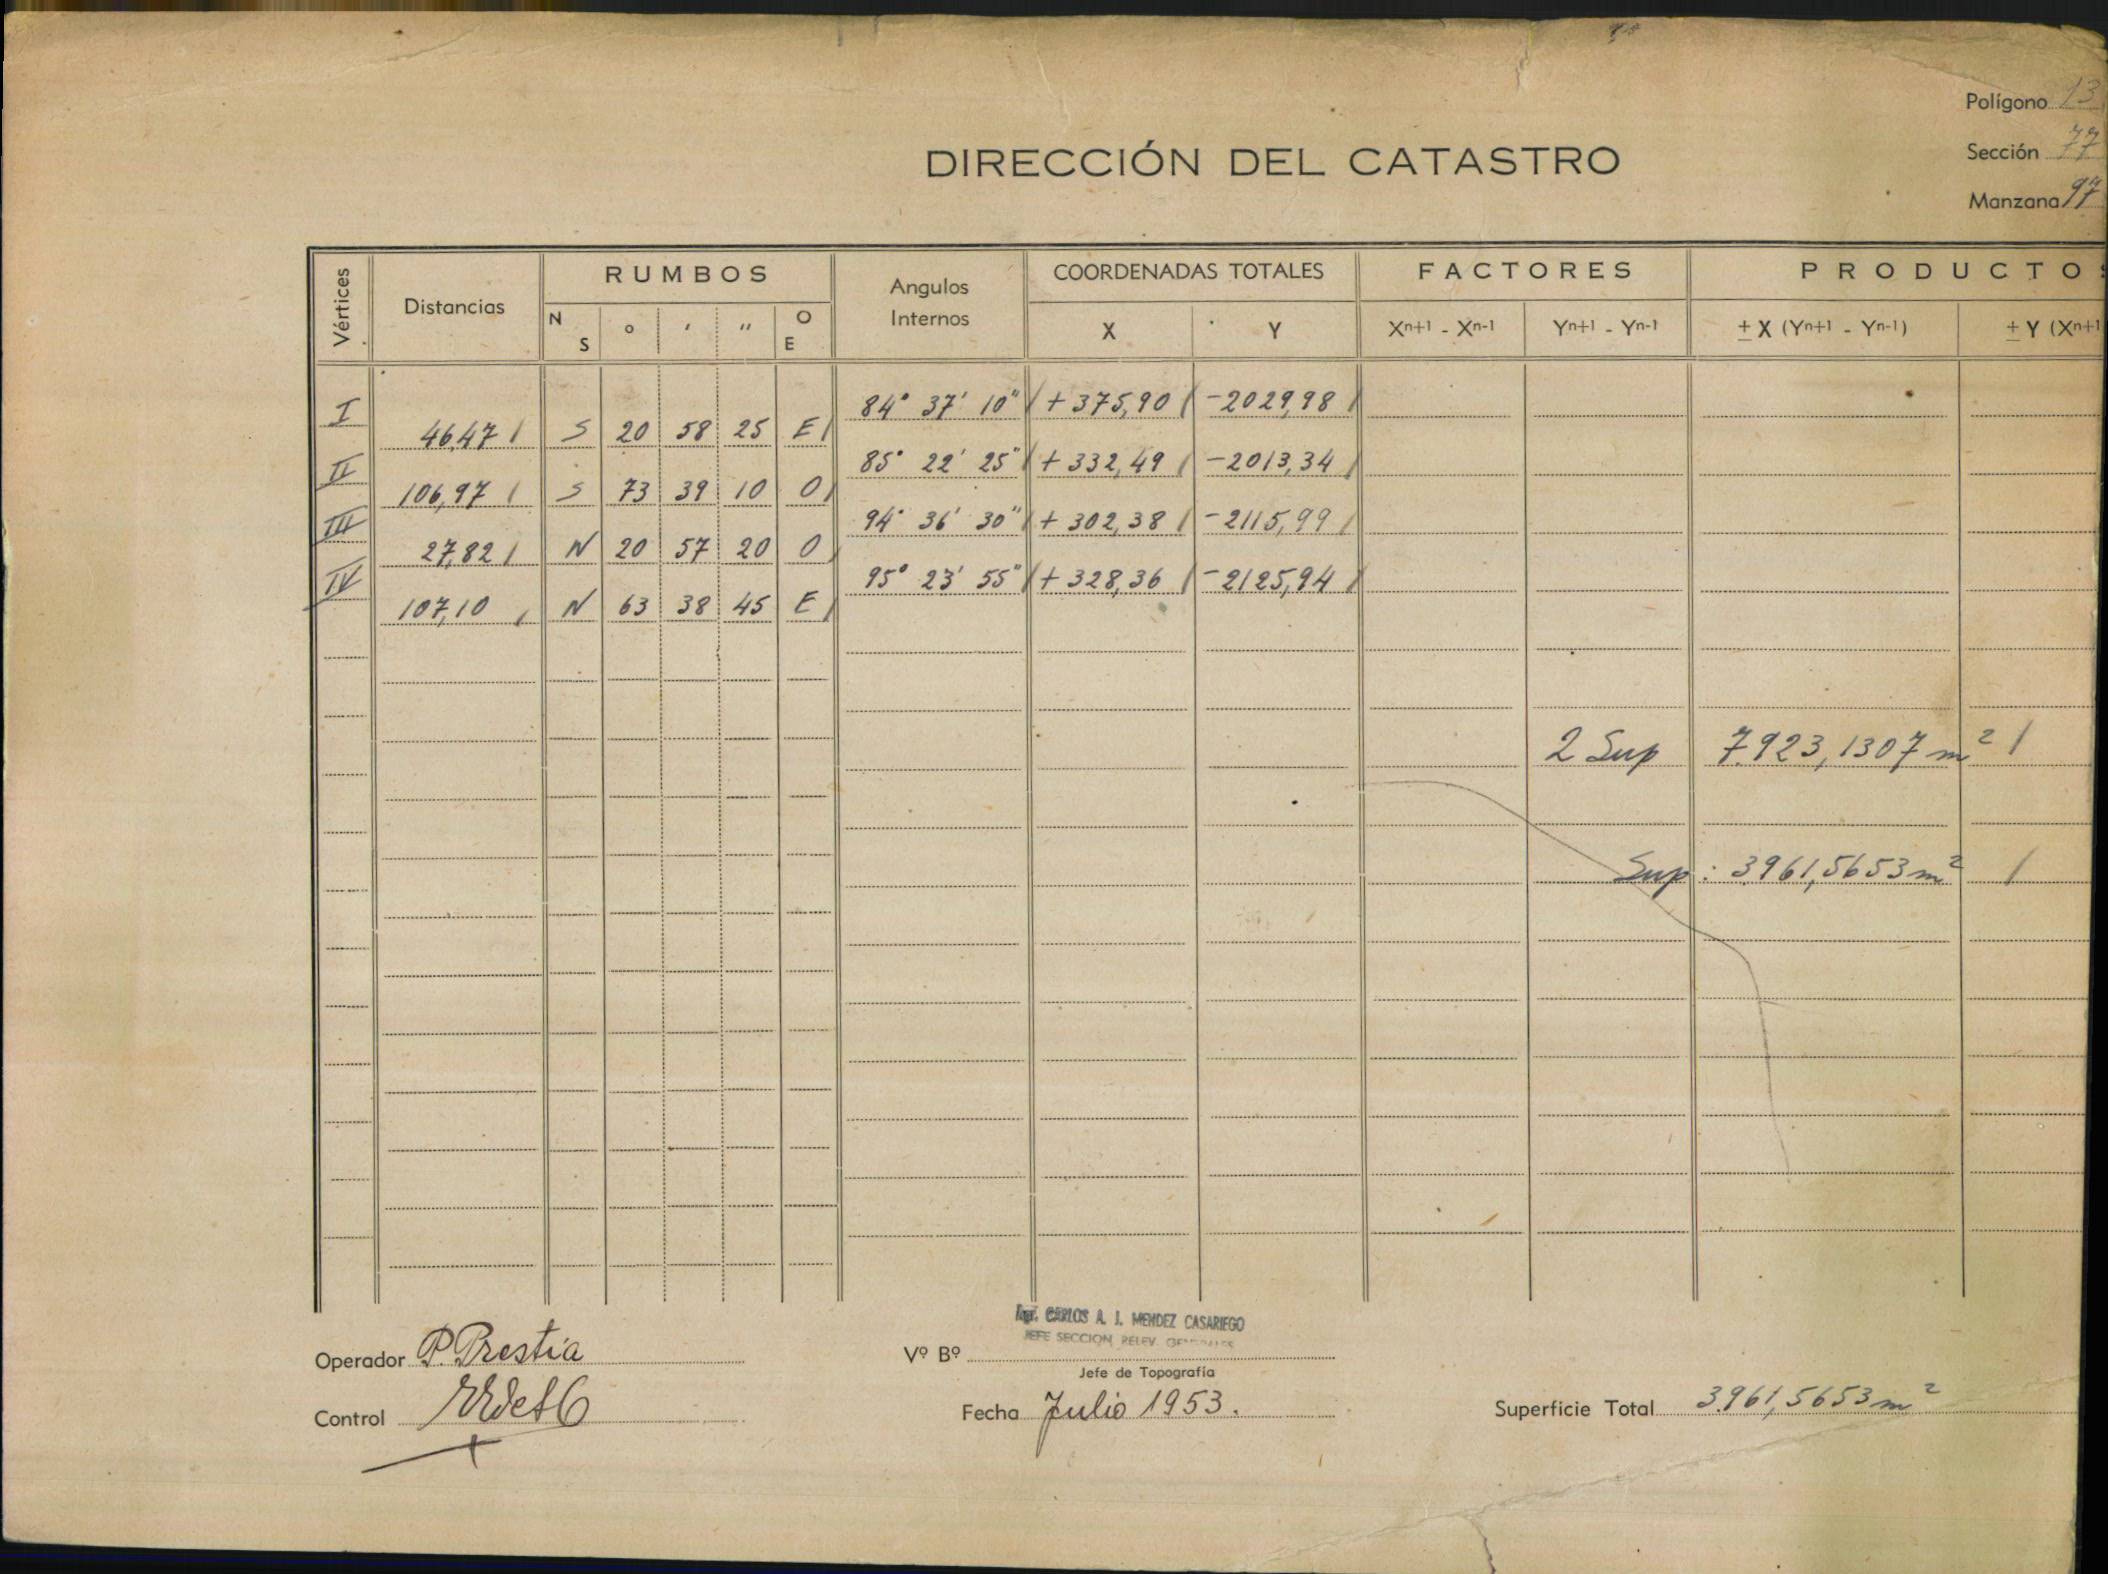 Polígono 13
DIRECCIÓN DEL CATASTRO
Sección 77
Manzana 97
Vértices Distancias RUMBOS Angulos Internos COORDENADAS TOTALES FACTORES PRODUCTOS
N S ° ' " O E X Y Xn+1 - Xn-1 Yn+1 - Yn-1 ± X (Yn+1 - Yn-1) ± Y (Xn+1
I 84° 37' 10" +375,90 -2029,98
46,47 S 20 58 25 E
II 85° 22' 25" +332,49 -2013,34
106,97 S 73 39 10 O
III 94° 36' 30" +302,38 -2115,99
27,82 N 20 57 20 O
IV 95° 23' 55" +328,36 -2125,94
107,10 N 63 38 45 E
2 Sup 7.923,1307 m²
Sup: 3961,5653 m²
CARLOS A. J. MENDEZ CASARIEGO
JEFE SECCION RELEV. GENERALES
Operador P. Prestia
Vº Bº
Jefe de Topografía
Control
Fecha Julio 1953.
Superficie Total 3.961,5653 m²